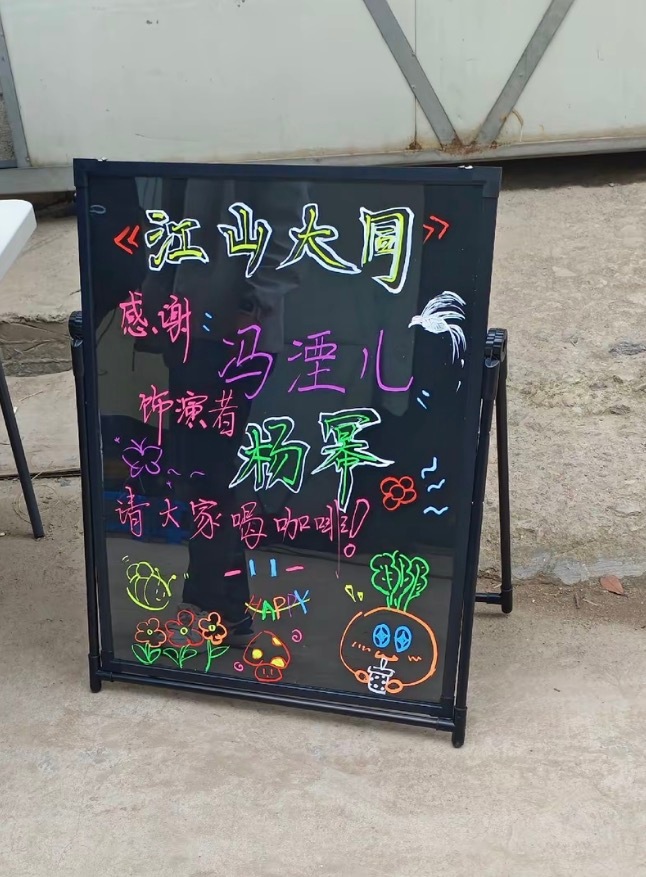 《江山大同》
感谢:冯湮儿
饰演者杨幂
请大家喝咖啡!
HAPPY